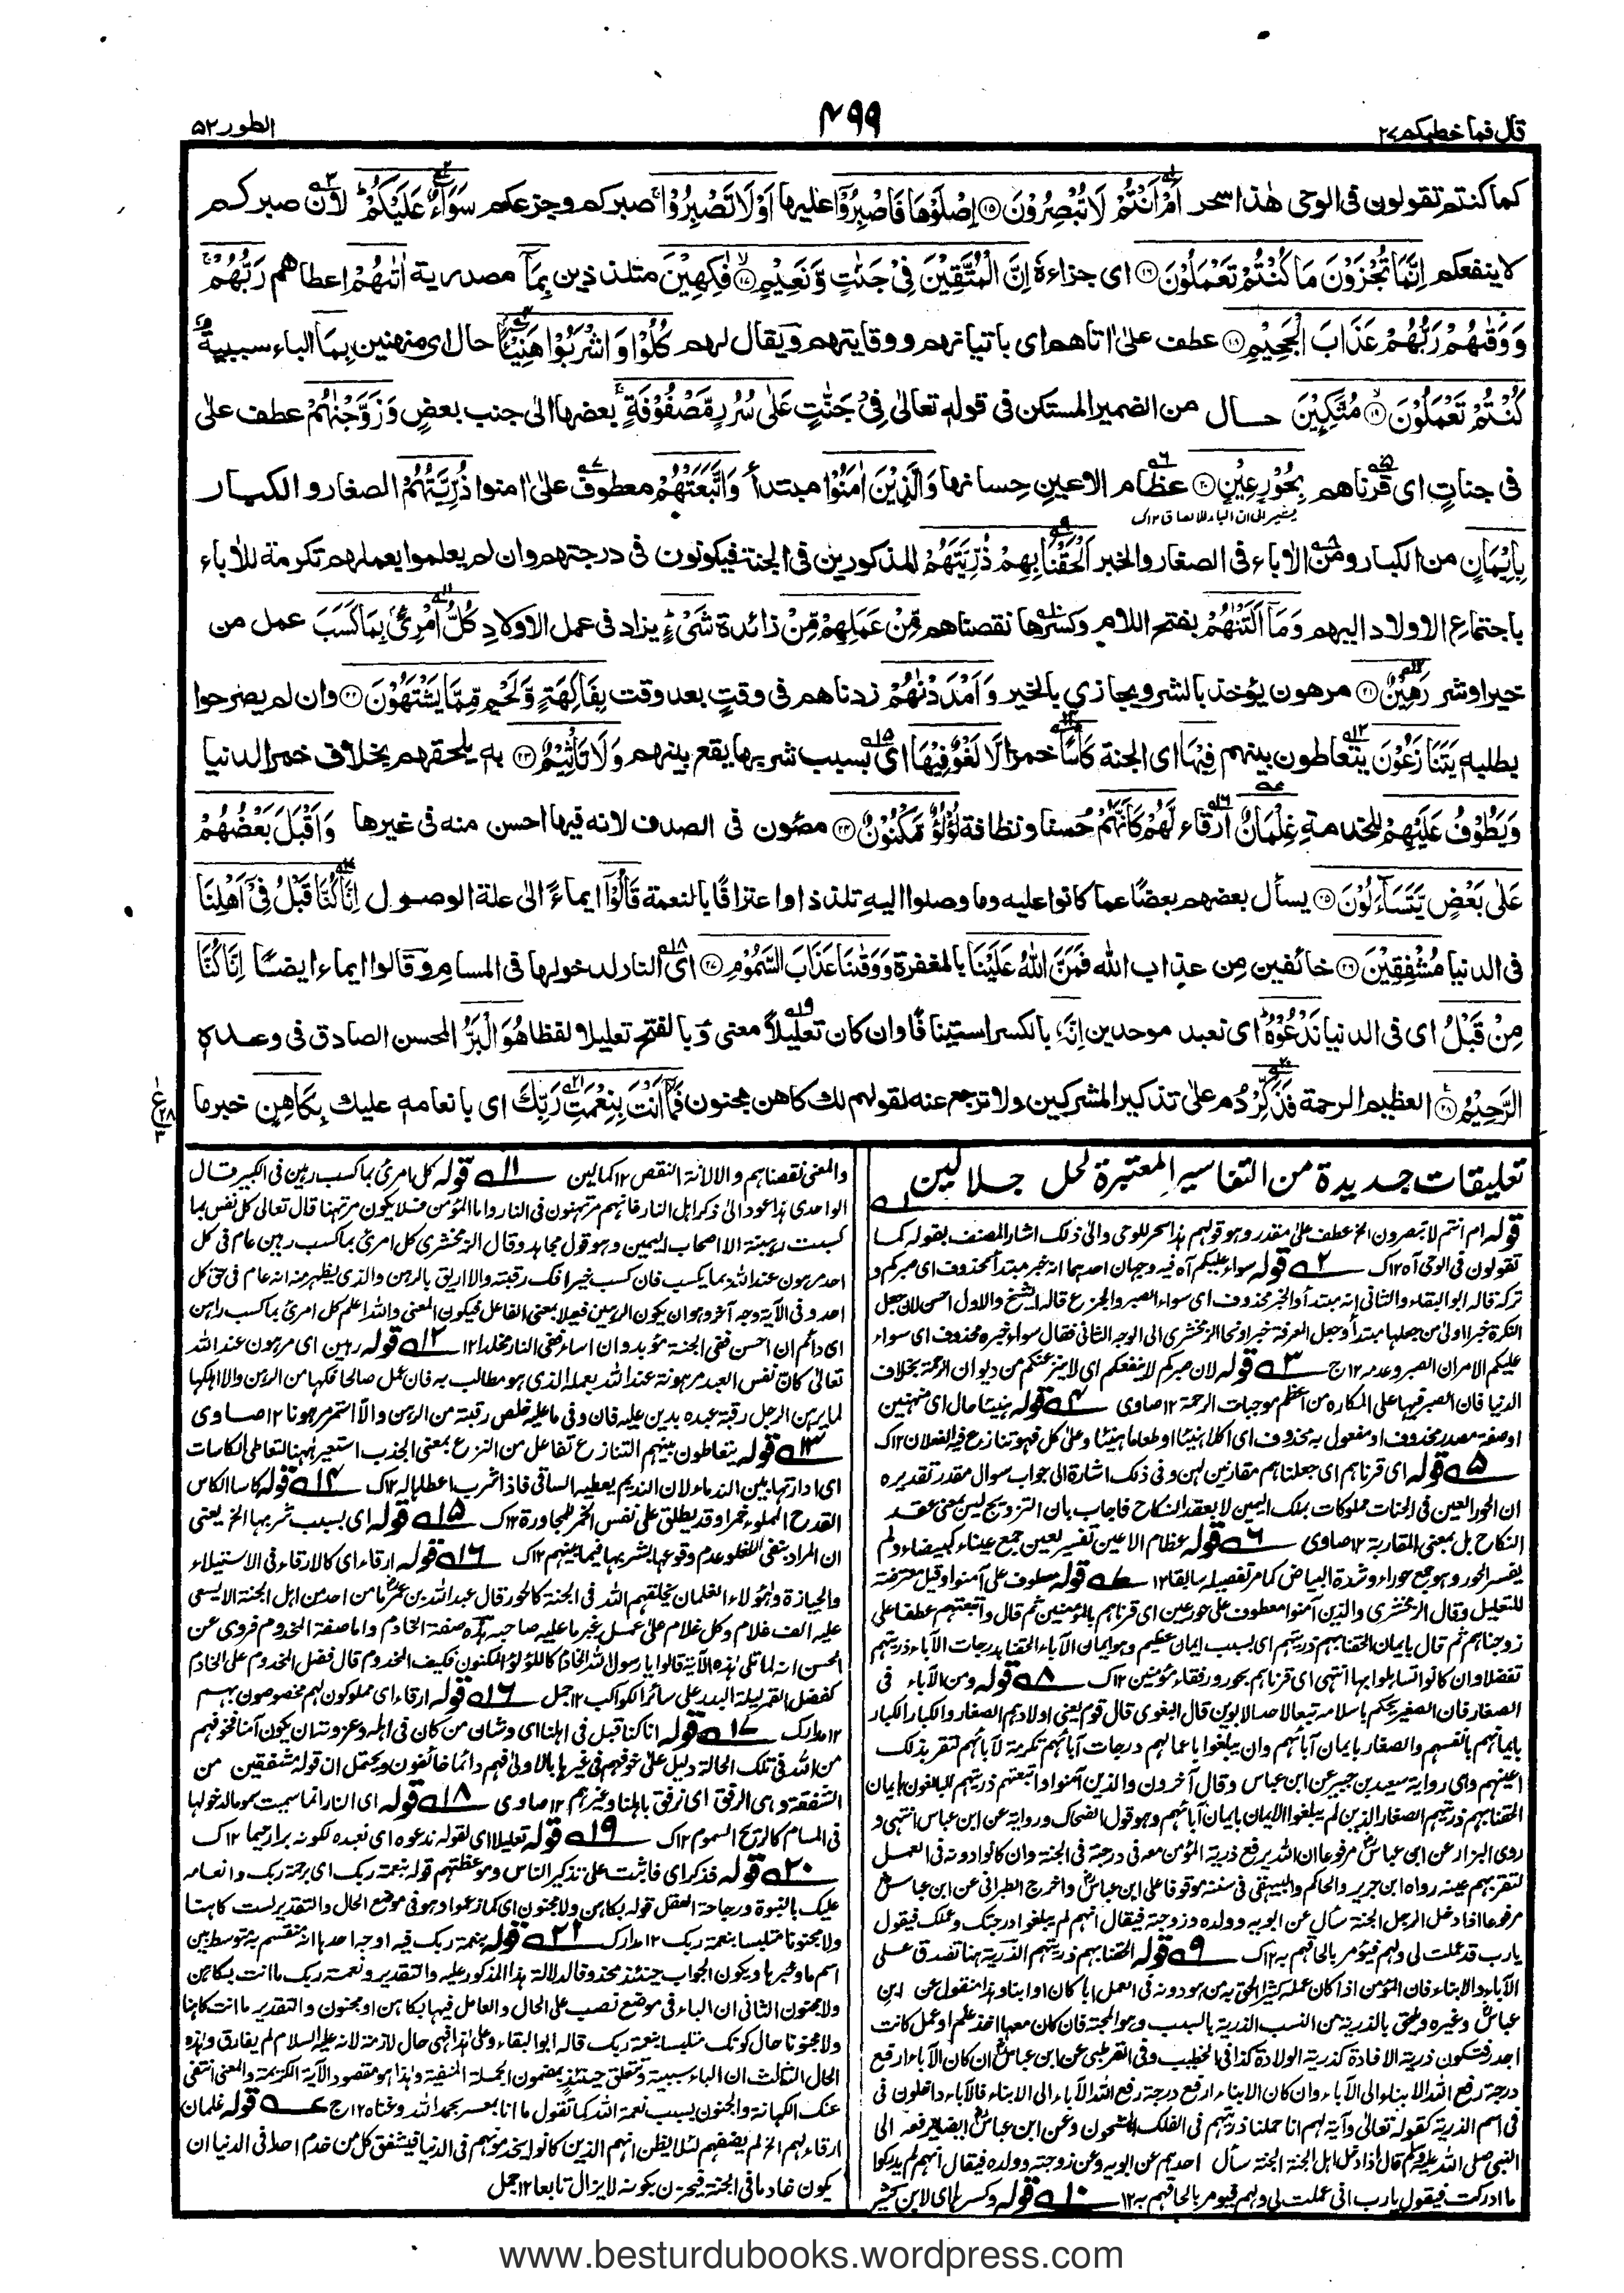 قال فما خطبكم ٢٧
٤٩٩
الطور ٥٢
كما كنتم تقولون فى الوحى هٰذا سحر اَمْ اَنْتُمْ لَا تُبْصِرُوْنَ ۝١٥ اِصْلَوْهَا فَاصْبِرُوْٓا عليها اَوْ لَا تَصْبِرُوْا ۚ صبركم وجزعكم سَوَآءٌ عَلَيْكُمْ ؕ لان صبركم
لا ينفعكم اِنَّمَا تُجْزَوْنَ مَا كُنْتُمْ تَعْمَلُوْنَ ۝١٦ اى جزاءه اِنَّ الْمُتَّقِيْنَ فِيْ جَنّٰتٍ وَّنَعِيْمٍ ۝١٧ فٰكِهِيْنَ متلذذين بِمَآ مصدرية اٰتٰىهُمْ اعطاهم رَبُّهُمْ ۚ
وَوَقٰىهُمْ رَبُّهُمْ عَذَابَ الْجَحِيْمِ ۝١٨ عطف علىٰ اٰتاهم اى باتيانهم ووقايتهم ويقال لهم كُلُوْا وَاشْرَبُوْا هَنِيْٓـًٔا حال اى متهنين بِمَا الباء سببية
كُنْتُمْ تَعْمَلُوْنَ ۝١٩ مُتَّكِـِٕيْنَ حال من الضمير المستكن فى قوله تعالىٰ فِيْ جَنّٰتٍ عَلٰى سُرُرٍ مَّصْفُوْفَةٍ ۚ بعضها الىٰ جنب بعضٍ وَزَوَّجْنٰهُمْ عطف علىٰ
فى جناتٍ اى قرناهم بِحُوْرٍ عِيْنٍ ۝٢٠ عظام الاعين حسانها وَالَّذِيْنَ اٰمَنُوْا مبتدأ وَاتَّبَعَتْهُمْ معطوف علىٰ اٰمنوا ذُرِّيَّتُهُمْ الصغار و الكبار
يشير الى ان الباء للالصاق ١٢ ك
بِاِيْمَانٍ من الكبار ومن الاٰباء فى الصغار والخبر اَلْحَقْنَا بِهِمْ ذُرِّيَّتَهُمْ المذكورين فى الجنة فيكونون فى درجتهم وان لم يعلموا بعملهم تكرمة للاٰباء
باجتماع الاولاد اليهم وَمَآ اَلَتْنٰهُمْ بفتح اللام وكسرها نقصناهم مِّنْ عَمَلِهِمْ مِّنْ زائدة شَيْءٍ ؕ يزاد فى عمل الاولادِ كُلُّ امْرِئٍۢ بِمَا كَسَبَ عمل من
خير او شر رَهِيْنٌ ۝٢١ مرهون يؤخذ بالشر ويجازى بالخير وَاَمْدَدْنٰهُمْ زدناهم فى وقتٍ بعد وقت بِفَاكِهَةٍ وَّلَحْمٍ مِّمَّا يَشْتَهُوْنَ ۝٢٢ وان لم يصرحوا
بطلبه يَتَنَازَعُوْنَ يتعاطون بينهم فِيْهَا اى الجنة كَاْسًا خمرا لَّا لَغْوٌ فِيْهَا اى بسبب شربها يقع بينهم وَلَا تَاْثِيْمٌ ۝٢٣ به يلحقهم بخلاف خمر الدنيا
وَيَطُوْفُ عَلَيْهِمْ للخدمة غِلْمَانٌ ارقاء لَّهُمْ كَاَنَّهُمْ حُسنا ونظافة لُؤْلُؤٌ مَّكْنُوْنٌ ۝٢٤ مصُون فى الصدف لانه فيها احسن منه فى غيرها وَاَقْبَلَ بَعْضُهُمْ
عَلٰى بَعْضٍ يَّتَسَآءَلُوْنَ ۝٢٥ يسأل بعضهم بعضًا عما كانوا عليه وما وصلوا اليه تلذذا واعترافًا بالنعمة قَالُوْٓا ايماءً الىٰ علة الوصول اِنَّا كُنَّا قَبْلُ فِيْٓ اَهْلِنَا
فى الدنيا مُشْفِقِيْنَ ۝٢٦ خائفين من عذاب الله فَمَنَّ اللّٰهُ عَلَيْنَا بالمغفرة وَوَقٰىنَا عَذَابَ السَّمُوْمِ ۝٢٧ اى النار لدخولها فى المسام وقالوا ايماء ايضًا اِنَّا كُنَّا
مِنْ قَبْلُ اى فى الدنيا نَدْعُوْهُ ؕ اى نعبد موحدين اِنَّهٗ بالكسر استينافًا وان كان تعليلاً معنى وبالفتح تعليلا لفظا هُوَ الْبَرُّ المحسن الصادق فى وعده
الرَّحِيْمُ ۝٢٨ العظيم الرحمة فَذَكِّرْ دُم علىٰ تذكير المشركين ولا ترجع عنه لقولهم لك كاهن مجنون فَمَآ اَنْتَ بِنِعْمَتِ رَبِّكَ اى بانعامه عليك بِكَاهِنٍ خبر ما
تعليقات جديدة من التفاسير المعتبرة لحل جلالين
١ قوله ام انتم لا تبصرون الخ عطف على مقدر وهو قولهم هذا سحر للوحى والىٰ ذلك اشار المصنف بقوله كما
تقولون فى الوحى آه ١٢ ك ٢ قوله سواء عليكم آه فيه وجهان احدهما انه خبر مبتدأ محذوف اى صبركم و
تركه قاله ابو البقاء والثانى انه مبتدأ والخبر محذوف اى سواء الصبر والجزع قاله الشيخ والاول احسن لان جعل
النكرة خبرا اولىٰ من جعلها مبتدأ وجعل المعرفة خبرا ونحا الزمخشرى الى الوجه الثانى فقال سواء خبره محذوف اى سواء
عليكم الامران الصبر وعدمه ١٢ ج ٣ قوله لان صبركم لا ينفعكم اى لا ينزعنكم من ديوان الرحمة بخلاف
الدنيا فان الصبر فيها على المكاره من اعظم موجبات الرحمة ١٢ صاوى ٤ قوله هنيئا حال اى متهنين
او صفة مصدر محذوف او مفعول به محذوف اى اكلا هنيئا او طعاما هنيئا وعلىٰ كل فهو تنازع فيه الفعلان ١٢ ك
٥ قوله اى قرناهم اى جعلناهم مقارنين لهن وفى ذلك اشارة الى جواب سوال مقدر تقديره
ان الحور العين فى الجنات مملوكات بملك اليمين لا بعقد النكاح فاجاب بان التزويج ليس بمعنى عقد
النكاح بل بمعنى المقارنة ١٢ صاوى ٦ قوله عظام الاعين تفسير لعين جمع عيناء كبيضاء ولم
يفسر الحور وهو جمع حوراء وشدة البياض كما مر تفصيله سابقا ١٢ ٧ قوله معطوف على آمنوا وقيل معترضة
للتعليل وقال الزمخشرى والذين آمنوا معطوف على حور عين اى قرناهم بالمؤمنين ثم قال واتبعتهم عطف على
زوجناهم ثم قال بايمان الحقنا بهم ذريتهم اى بسبب ايمان عظيم وهو ايمان الآباء الحقنا بدرجات الآباء ذريتهم
تفضلا وان كانوا لا يستاهلونها انتهى اى قرناهم بحور ورفقاء مؤمنين ١٢ ك ٨ قوله ومن الآباء فى
الصغار فان الصغير يحكم باسلامه تبعا لاحد الابوين قال البغوى قال قوم يعنى اولادهم الصغار والكبار الكبار
بايمانهم بانفسهم والصغار بايمان آبائهم وان لم يبلغوا باعمالهم درجات آبائهم تكرمة لآبائهم لتقر بذلك
اعينهم وهى رواية سعيد بن جبير عن ابن عباس وقال آخرون والذين آمنوا واتبعتهم ذريتهم البالغون بايمان
الحقنا بهم ذريتهم الصغار الذين لم يبلغوا الايمان بايمان آبائهم وهو قول الضحاك ورواية عن ابن عباس انتهى و
روى البزار عن ابن عباس مرفوعا ان الله يرفع ذرية المؤمن معه فى درجته فى الجنة وان كانوا دونه فى العمل
لتقر بهم عينه رواه ابن جرير والحاكم والبيهقى فى سننه موقوفا على ابن عباس واخرج الطبرانى عن ابن عباس
مرفوعا اذا دخل الرجل الجنة سأل عن ابويه وولده وزوجته فيقال انهم لم يبلغوا درجتك وعملك فيقول
يارب قد عملت لى ولهم فيؤمر بالحاقهم به ١٢ ك ٩ قوله الحقنا بهم ذريتهم الذرية هنا تصدق على
الآباء والابناء فان المؤمن اذا كان عمله كثيرا الحق به من هو دونه فى العمل ابا كان او ابنا وهذا منقول عن ابن
عباس وغيره ويلحق بالذرية من النسب الذرية بالسبب وهو المحبة فان كان معها اخذ علم او عمل كانت
اجدر فتكون ذرية الافادة كذرية الولادة كذا فى الخطيب وفى القرطبى عن ابن عباس ان كان الآباء ارفع
درجة رفع الله الابناء الى الآباء وان كان الابناء ارفع درجة رفع الله الآباء الى الابناء فالآباء داخلون فى
فى اسم الذرية كقوله تعالىٰ وآية لهم انا حملنا ذريتهم فى الفلك المشحون وعن ابن عباس ايضا يرفعه الى
النبى صلى الله عليه وسلم قال اذا دخل اهل الجنة الجنة سأل احدهم عن ابويه وعن زوجته وولده فيقال انهم لم يدركوا
ما ادركت فيقول يارب انى عملت لى ولهم فيؤمر بالحاقهم به ١٢ ١٠ قوله وكسرها اى لابن كثير
والمعنى نقصناهم والالاتة النقص ١٢ كمالين ١١ قوله كل امرئ بما كسب رهين فى الكبير قال
الواحدى هذا عود الىٰ ذكر اهل النار فانهم مرتهنون فى النار واما المؤمن فلا يكون مرتهنا قال تعالىٰ كل نفس بما
كسبت رهينة الا اصحاب اليمين وهو قول مجاهد وقال الزمخشرى كل امرئ بما كسب رهين عام فى كل
احد مرهون عند الله بما يكسب فان كسب خيرا فك رقبته والا اربق بالرهن والذى يظهر منه انه عام فى حق كل
احد وفى الآية وجه آخر وهو ان يكون الرهين فعيلا بمعنى الفاعل فيكون المعنى والله اعلم كل امرئ بما كسب راهن
اى دائم ان احسن ففى الجنة مؤبد وان اساء ففى النار مخلد ١٢ ١٢ قوله رهين اى مرهون عند الله
تعالىٰ كان نفس العبد مرهونة عند الله بعمله الذى هو مطالب به فان عمل صالحا فكها من الرهن والا اهلكها
كما يرهن الرجل رقبة عبده بدين عليه فان وفى ما عليه خلص رقبته من الرهن والا استمر مرهونا ١٢ صاوى
١٣ قوله يتعاطون بينهم التنازع تفاعل من النزع بمعنى الجذب استعير ههنا لتعاطى الكاسات
اى ادارتها بين الندماء لان النديم يعطيه الساقى فاذا شرب اعطاها له ١٢ ك ١٤ قوله كاسا الكاس
القدح المملوء خمرا وقد يطلق على نفس الخمر للمجاورة ١٢ ك ١٥ قوله اى بسبب شربها الخ يعنى
ان المراد بنفى اللغو عدم وقوعها بشربها فيما بينهم ١٢ ك ١٦ قوله ارقاء اى كالارقاء فى الاستيلاء
والحيازة وهؤلاء الغلمان يخلقهم الله فى الجنة كالحور قال عبد الله بن عمر ما من احد من اهل الجنة الا يسعى
عليه الف غلام وكل غلام علىٰ عمل غير ما عليه صاحبه هذه صفة الخادم واما صفة المخدوم فروى عن
الحسن انه لما تلى هذه الآية قالوا يا رسول الله الخادم كاللؤلؤ المكنون فكيف المخدوم قال فضل المخدوم على الخادم
كفضل القمر ليلة البدر على سائر الكواكب ١٢ جمل ١٦ قوله ارقاء اى مملوكون لهم مخصوصون بهم
١٢ مدارك ١٧ قوله انا كنا قبل فى اهلنا اى وشان من كان فى اهله وعزوته ان يكون آمنا فخوفهم
من الله فى تلك الحالة دليل علىٰ خوفهم فى غيرها بالاولىٰ فهم دائما خائفون ويحتمل ان قوله مشفقين من
الشفقة وهى الرفق اى نرفق باهلنا وغيرهم ١٢ صاوى ١٨ قوله اى النار انما سميت سموما لدخولها
فى المسام كالريح السموم ١٢ ك ١٩ قوله تعليلا اى لقوله ندعوه اى نعبده لكونه برا رحيما ١٢ ك
٢٠ قوله فذكر اى فاثبت على تذكير الناس وموعظتهم قوله بنعمة ربك اى برحمة ربك وانعامه
عليك بالنبوة ورجاحة العقل قوله بكاهن ولا مجنون اى كما زعموا وهو فى موضع الحال والتقدير لست كاهنا
ولا مجنونا متلبسا بنعمة ربك ١٢ مدارك ٢١ قوله بنعمة ربك فيه اوجه احدها انه مقسم به متوسط بين
اسم ما وخبرها ويكون الجواب حينئذ محذوفا لدلالة هذا المذكور عليه والتقدير ونعمة ربك ما انت بكاهن
ولا مجنون الثانى ان الباء فى موضع نصب على الحال والعامل فيها بكاهن او مجنون والتقدير ما انت كاهنا
ولا مجنونا حال كونك متلبسا بنعمة ربك قاله ابو البقاء وعلىٰ هذا فهى حال لازمة لانه عليه السلام لم يفارق هذه
الحال الثالث ان الباء سببية وتتعلق حينئذ بمضمون الجملة المنفية وهذا هو مقصود الآية الكريمة والمعنى انتفى
عنك الكهانة والجنون بسبب نعمة الله كما تقول ما انا بمعسر بحمد الله وغناه ١٢ ج عه قوله غلمان
ارقاء لهم الخ لم يضفهم لئلا يظن انهم الذين كانوا يخدمونهم فى الدنيا فيشفق كل من خدم احدا فى الدنيا ان
يكون خادما فى الجنة فيحزن بكونه لا يزال تابعا ١٢ جمل
www.besturdubooks.wordpress.com